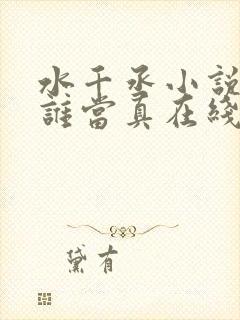 水千丞小說
誰當真在綫
黛有